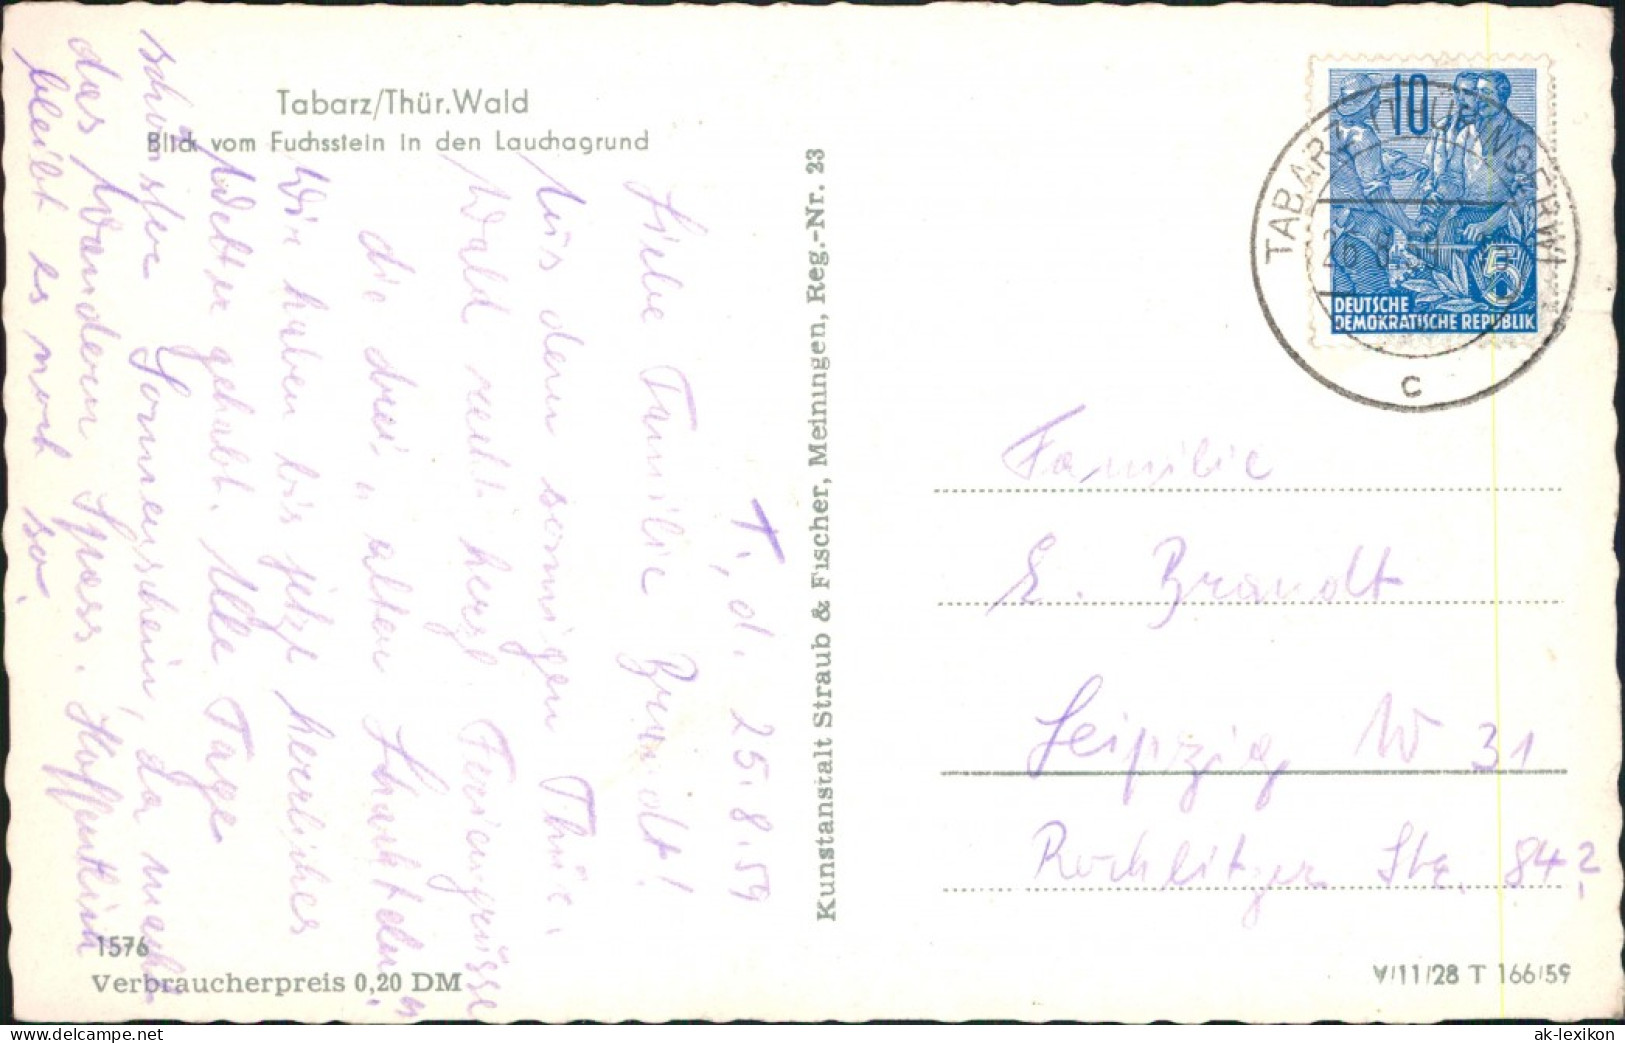 Tabarz/Thür.Wald
Blick vom Fuchsstein in den Lauchagrund
T., d. 25.8.59
Liebe Familie Brandt!
Aus dem sonnigen Thür.
Wald recht herzl. Feriengrüsse
die drei „alten
Wir haben bis jetzt herrliches
Wetter gehabt. Alle Tage
schönster Sonnenschein, da macht
das Wandern Spass. Hoffentlich
bleibt es noch so.
1576
Verbraucherpreis 0,20 DM
Kunstanstalt Straub & Fischer, Meiningen, Reg.-Nr. 23
10
5
DEUTSCHE
DEMOKRATISCHE REPUBLIK
TABARZ (THÜRINGERW)
c
Familie
E. Brandt
Leipzig W 31
Rochlitzer Str. 84?
V/11/28 T 166/59
www.delcampe.net
ak-lexikon